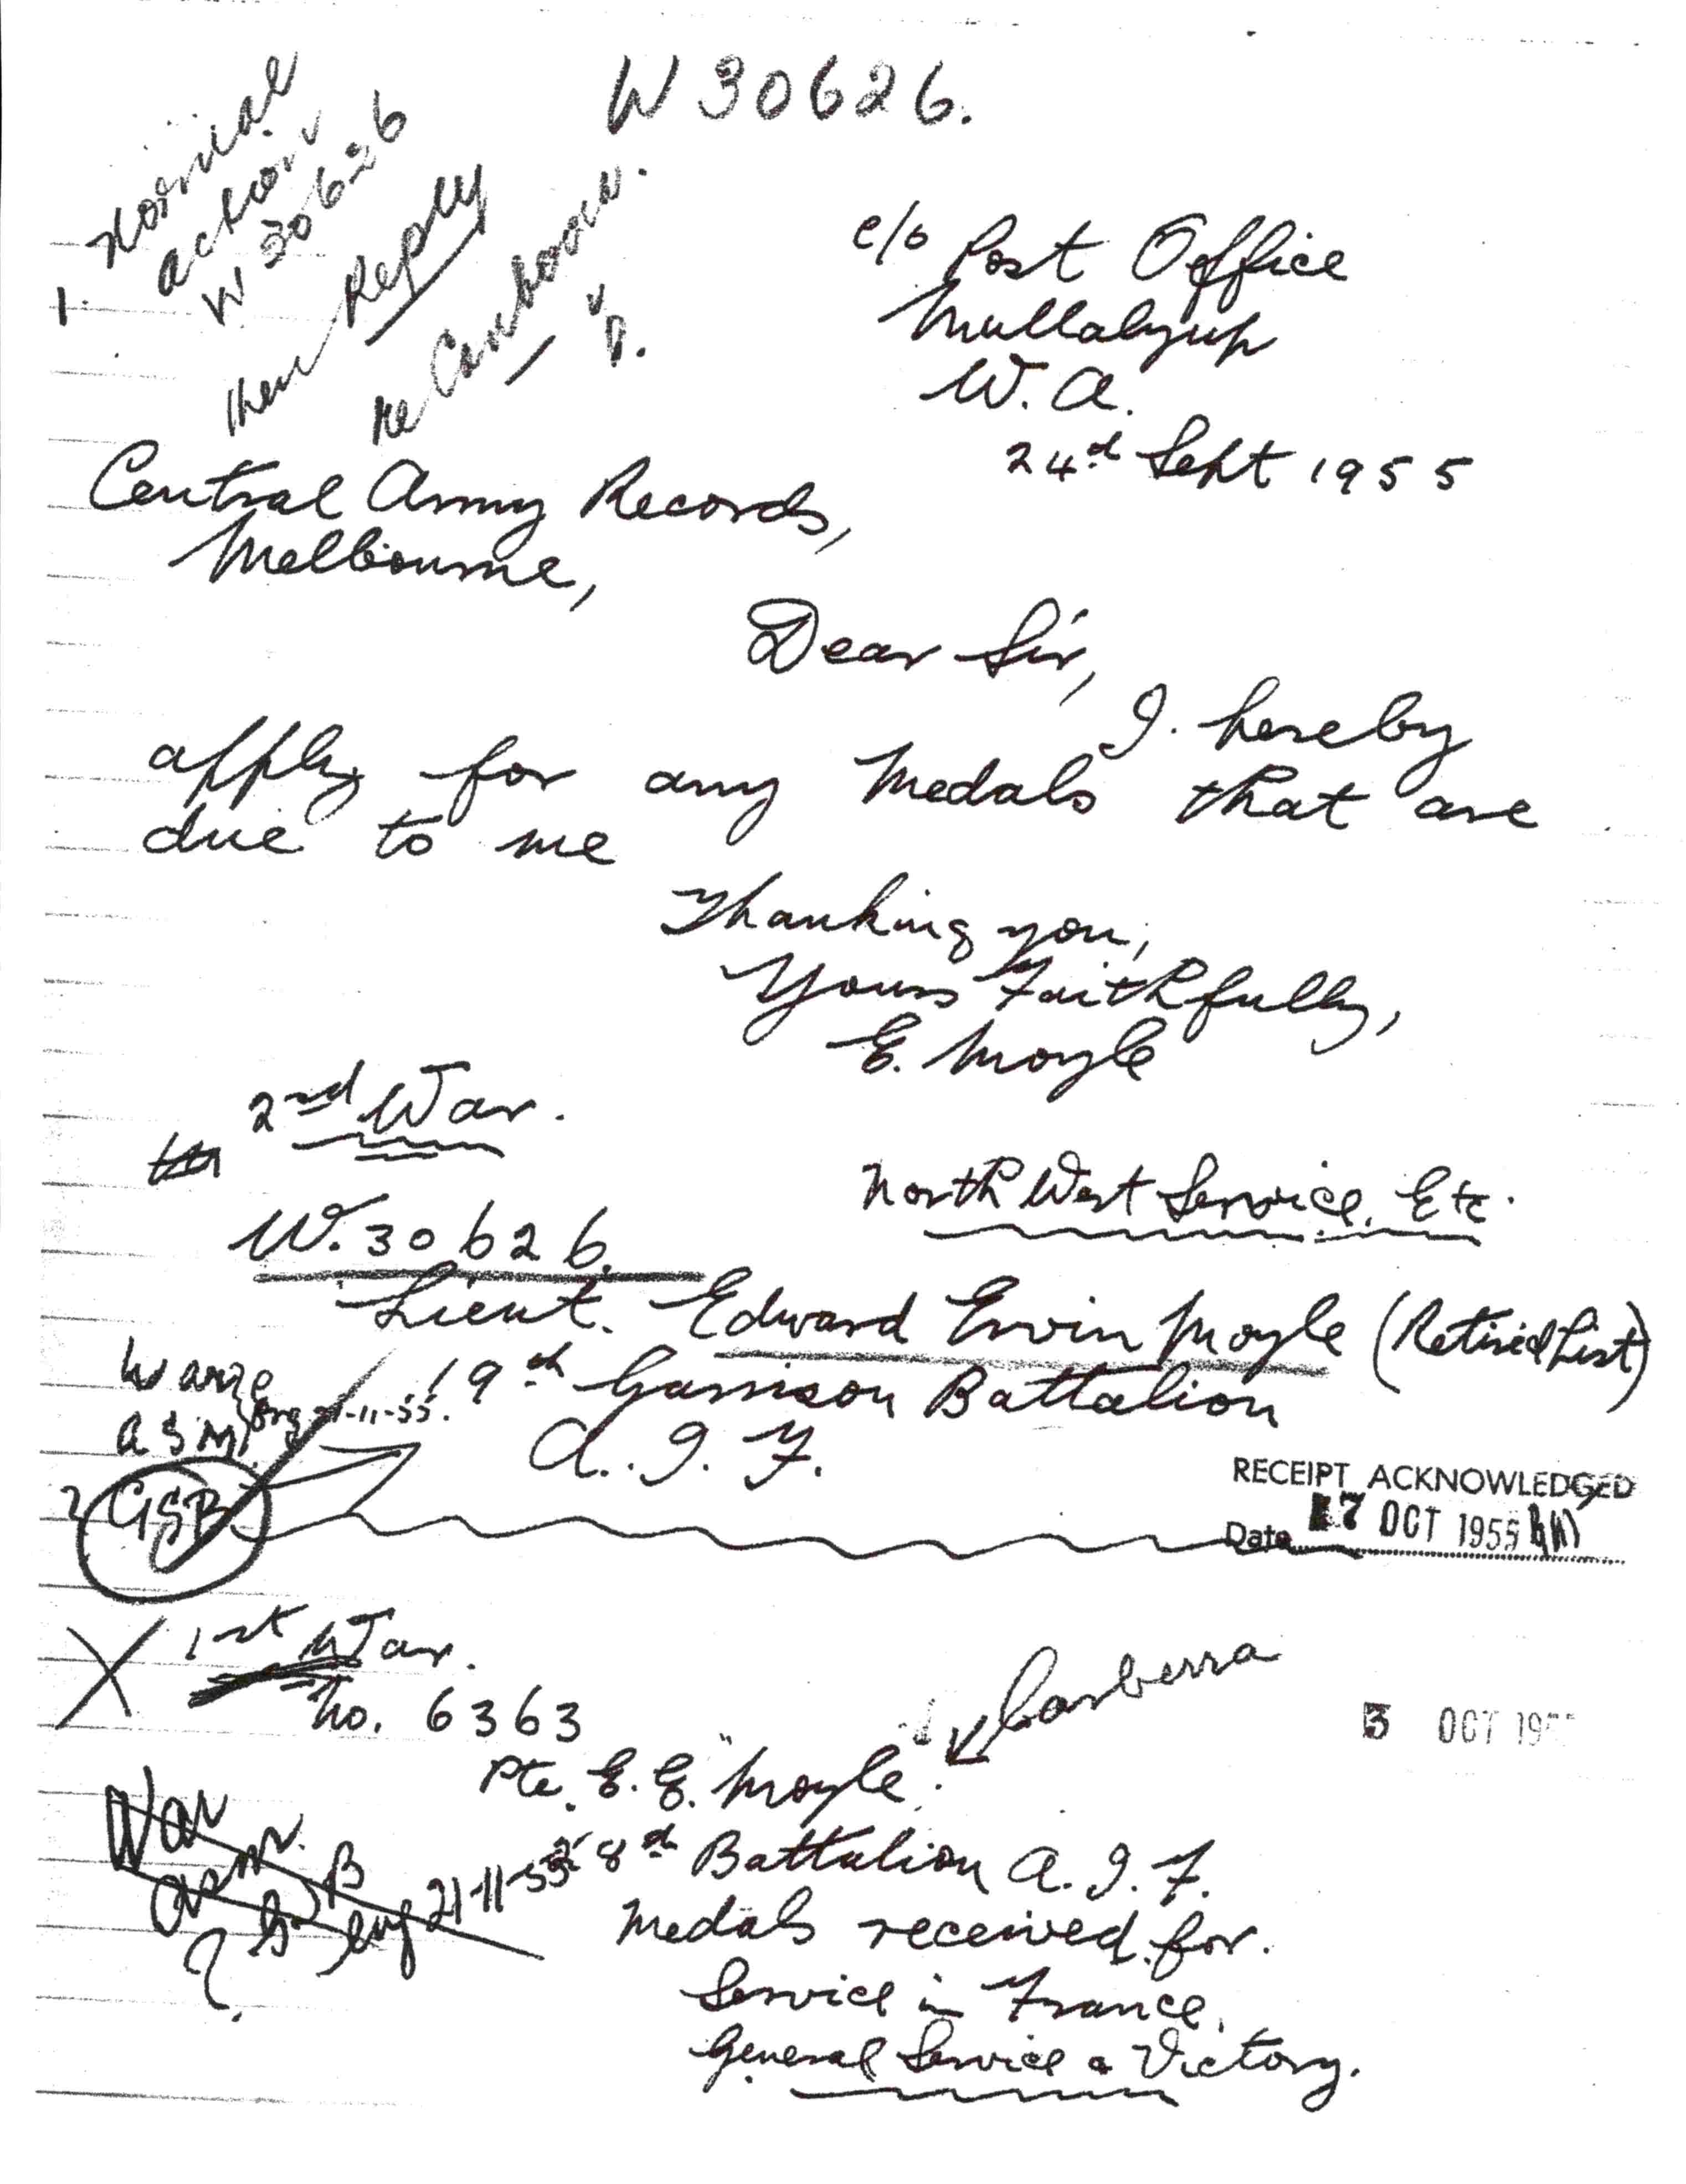 W 30626.
Normal
action
W 30626
1.
then Reply
re Canberra.
c/o Post Office
Mullalyup
W. A.
24th Sept 1955
Central Army Records,
Melbourne,
Dear Sir,
I. hereby
apply for any Medals that are
due to me
Thanking you,
Yours Faithfully,
E. Moyle
2nd War.
North West Service, Etc.
W. 30626.
Lieut. Edward Ervin Moyle (Retired List)
19th Garrison Battalion
A. I. F.
ASM
GSB
RECEIPT ACKNOWLEDGED
Date 17 OCT 1955
1st War.
No. 6363
Canberra
3 OCT
Pte. E. E. Moyle.
War
21-11-55
8th Battalion A. I. F.
Medals received for.
Service in France.
General Service & Victory.